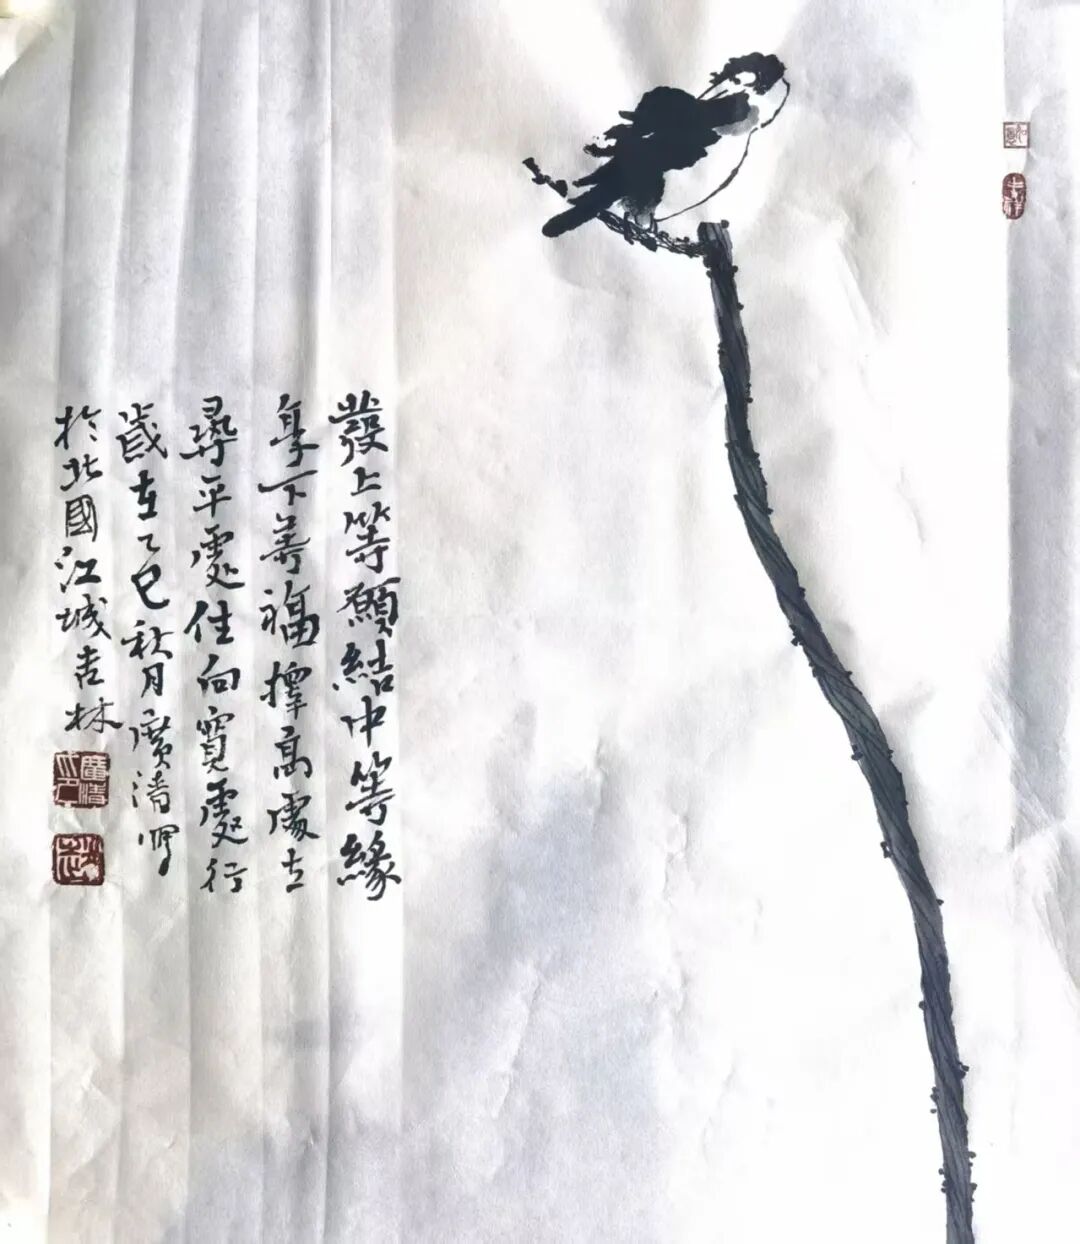 發上等願結中等緣
享下等福擇高處立
尋平處住向寬處行
歲在乙巳秋月廣清寫
於北國江城吉林